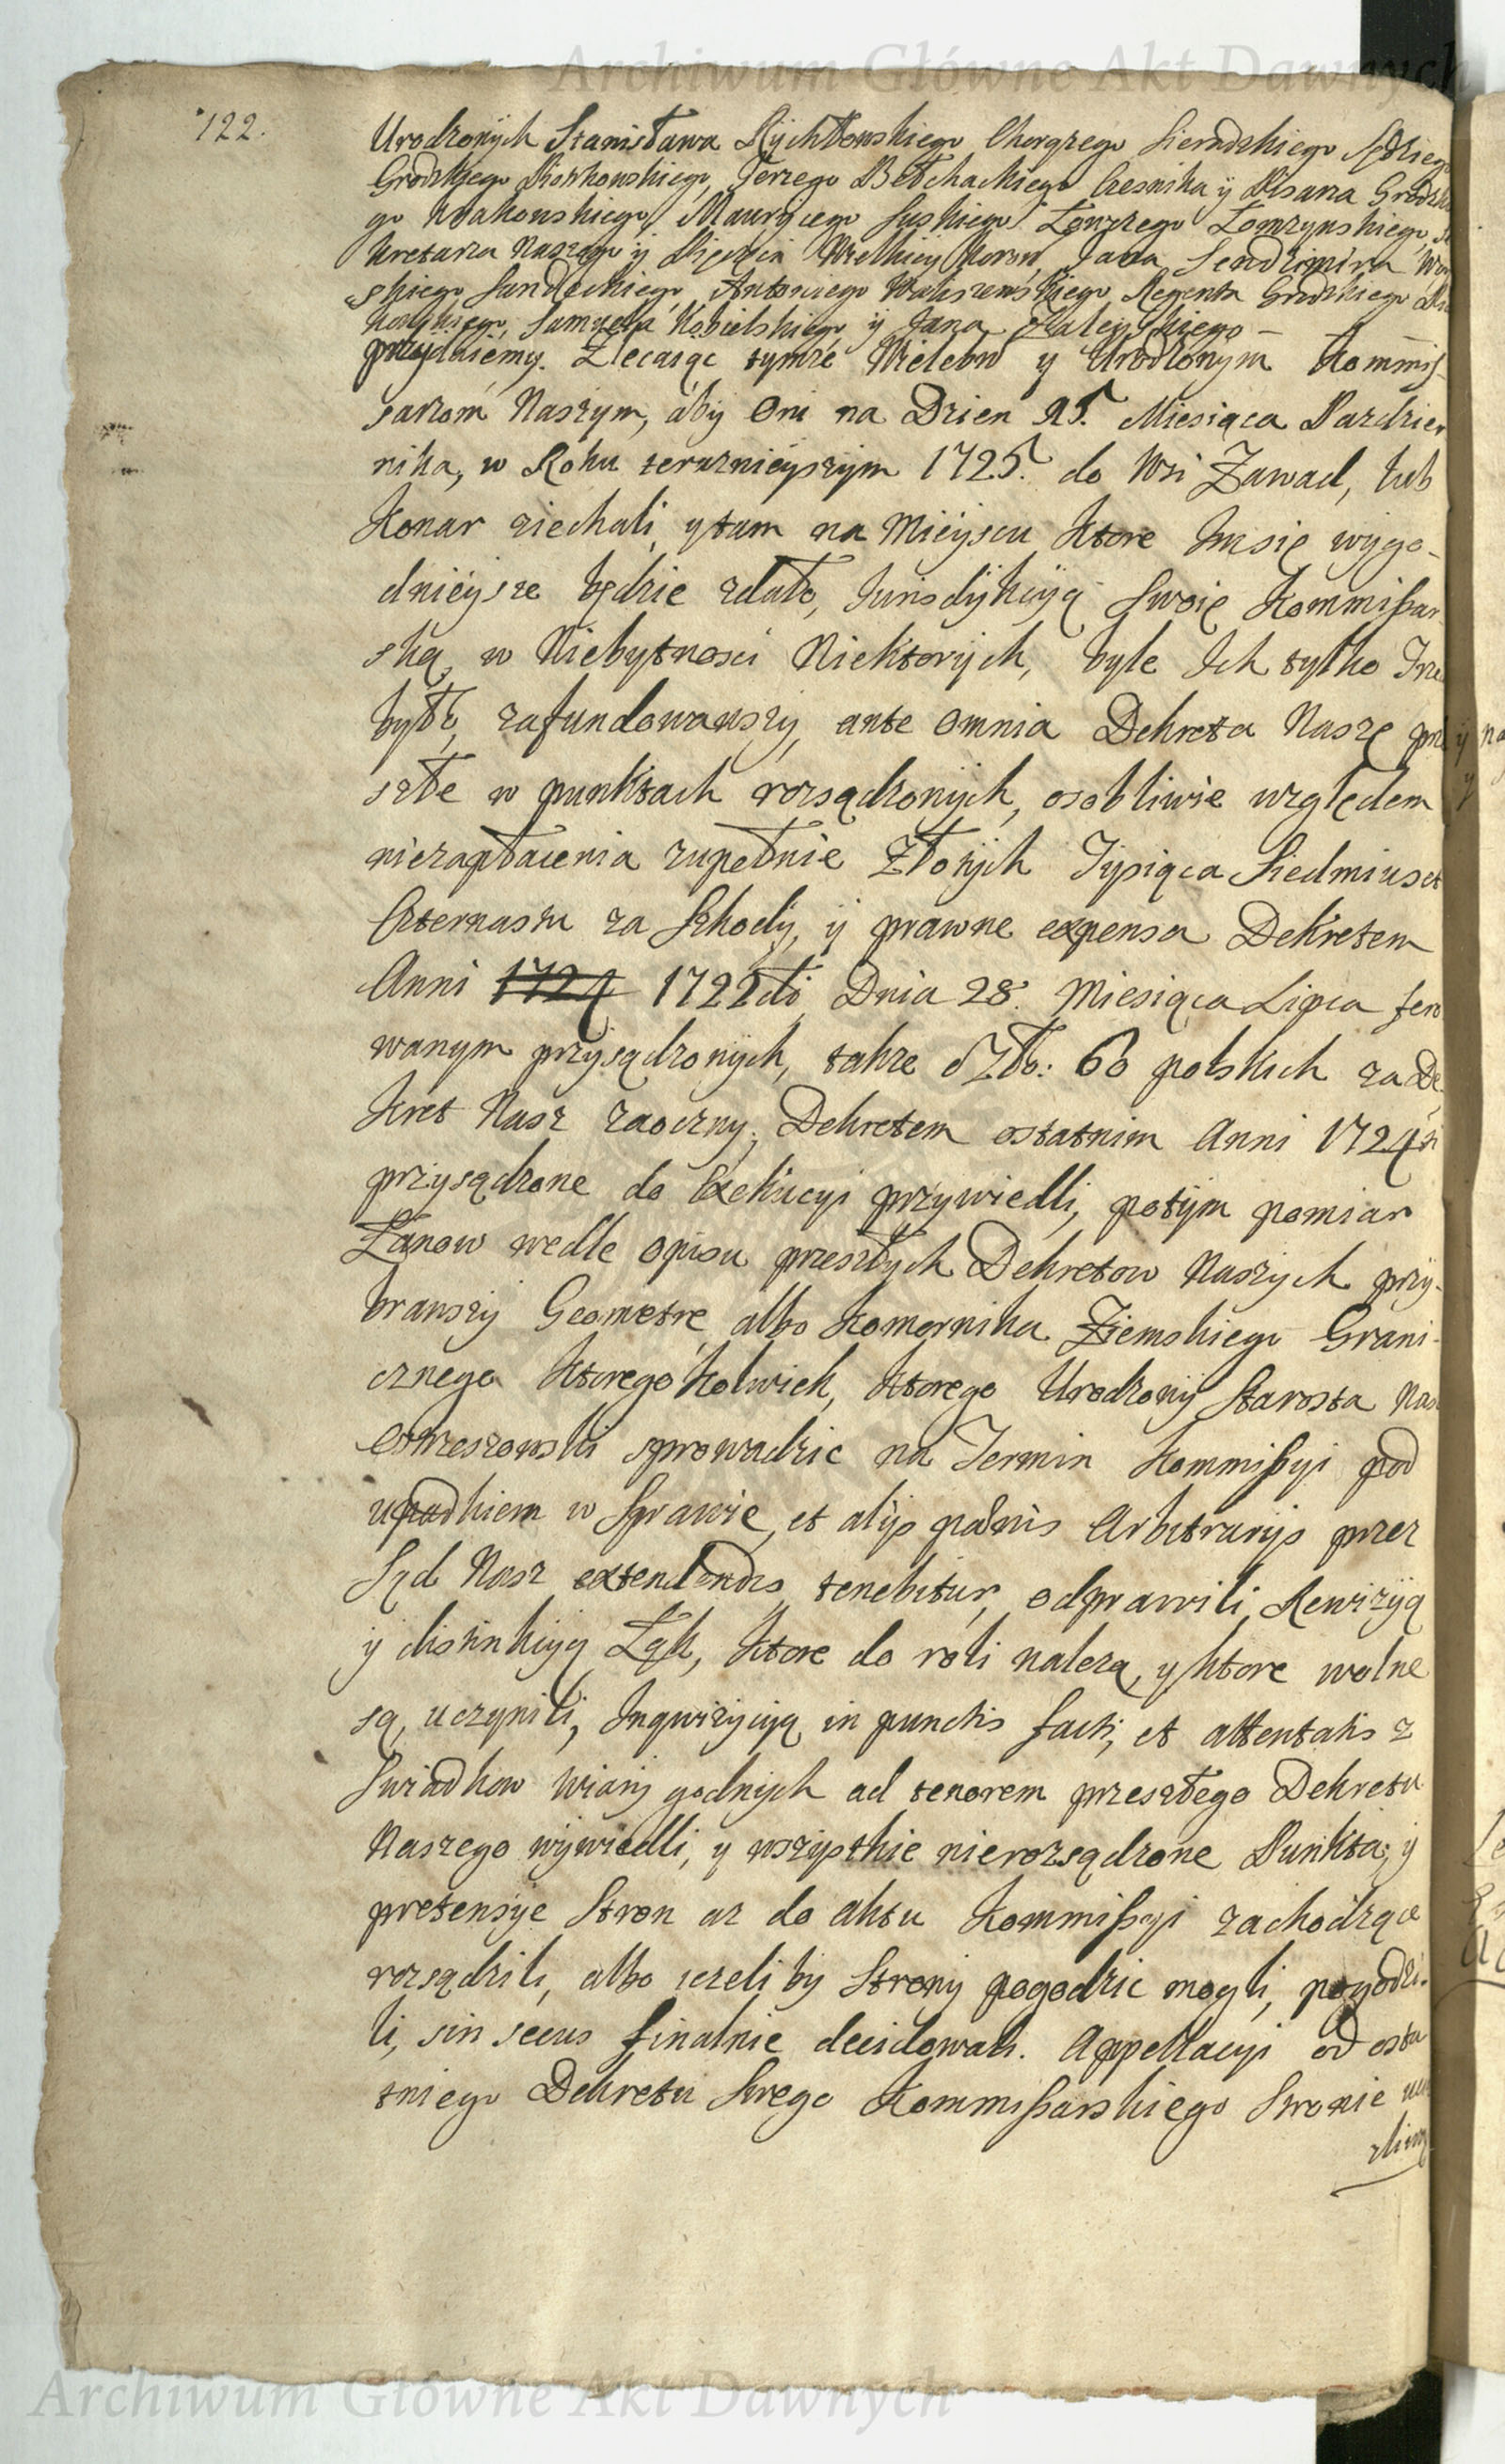 Archiwum Główne Akt Dawnych
122.
Urodzonych Stanisława Rychłowskiego Chorązego Sieradzkiego Sędziego
Grodzkiego Piotrkowskiego, Jerzego Bełchackiego Czesnika ÿ Pisarza Grodzkie
go Krakowskiego, Maurÿcego Suskiego Łowczego Łomzynskiego, Se
kretarza Naszego ÿ Pieczęci Wielkiey Koron, Jana Sendzimira Woy
skiego Sandeckiego, Antoniego Waliszewskiego Regenta Grodzkiego
Samuela Kobielskiego ÿ Jana Zaleyskiego –
przydaiemy. Zlecaiąc tymze Wielebn̄ y Urodzonym̄ Kom̄mis-
sarzom Naszym, aby Oni na Dzien 25. Miesiąca Pazdzier
nika, w Roku teraznieÿszÿm 1725. do Wsi Zawad, lub
Konar ziechali, y tam na Mieÿscu ktore Im się wÿgo-
dnieÿsze będzie zdało, Jurisdÿkcÿą Swoię Kommißar
ską, w Niebytnosci Niektorÿch, byle Ich tylko Trze
było, zafundowawszy, ante omnia Dekreta Nasze prze
szłe w punktach rozsądzonÿch, osobliwie względem
niezapłacenia zupełnie Złotÿch Tysiąca Siedmiuset
Czternastu za Szkodÿ, ÿ prawne expensa Dekretem
Anni 1724 1722do Dnia 28. Miesiąca Lipca fero
wanym przysądzonÿch, takze Zło: 60 polskich za De
kret Nasz zaoczny, Dekretem ostatnim Anni 1724
przysądzone do Exekucyi przywiedli, potÿm pomiar
Łanow wedle opisu przeszłych Dekretow Naszÿch przy-
brawszÿ Geometrę, albo Komornika Ziemskiego Grani-
cznego ktoregokolwiek, ktorego Urodzonÿ Starosta Nasz
Ostrzeszowski sprowadzic na Termin Kommißyi pod
upadkiem w Sprawie, et alÿs pænis Arbitrarÿs przez
Sąd Nasz extendendis tenebitur, odprawili, Rewizÿą
ÿ distinkcÿą Łąk, ktore do roli nalezą, y ktore wolne
są, uczynili, Inqwizÿcÿą in punctis facti, et attentatis z
Swiadkow wiarÿ godnÿch ad tenorem przeszłego Dekretu
Naszego wÿwiedli, y wszÿstkie nierozsądzone Punkta, ÿ
pretensÿe Stron az do aktu Kommißyi zachodzące
rozsądzili, albo iezeliby Strony pogodzic mogli, pogodzi-
li, sin secus finalnie decidowali. Appellacyi od osta
tniego Dekretu Swego Kommißarskiego Stronie
Archiwum Główne Akt Dawnych